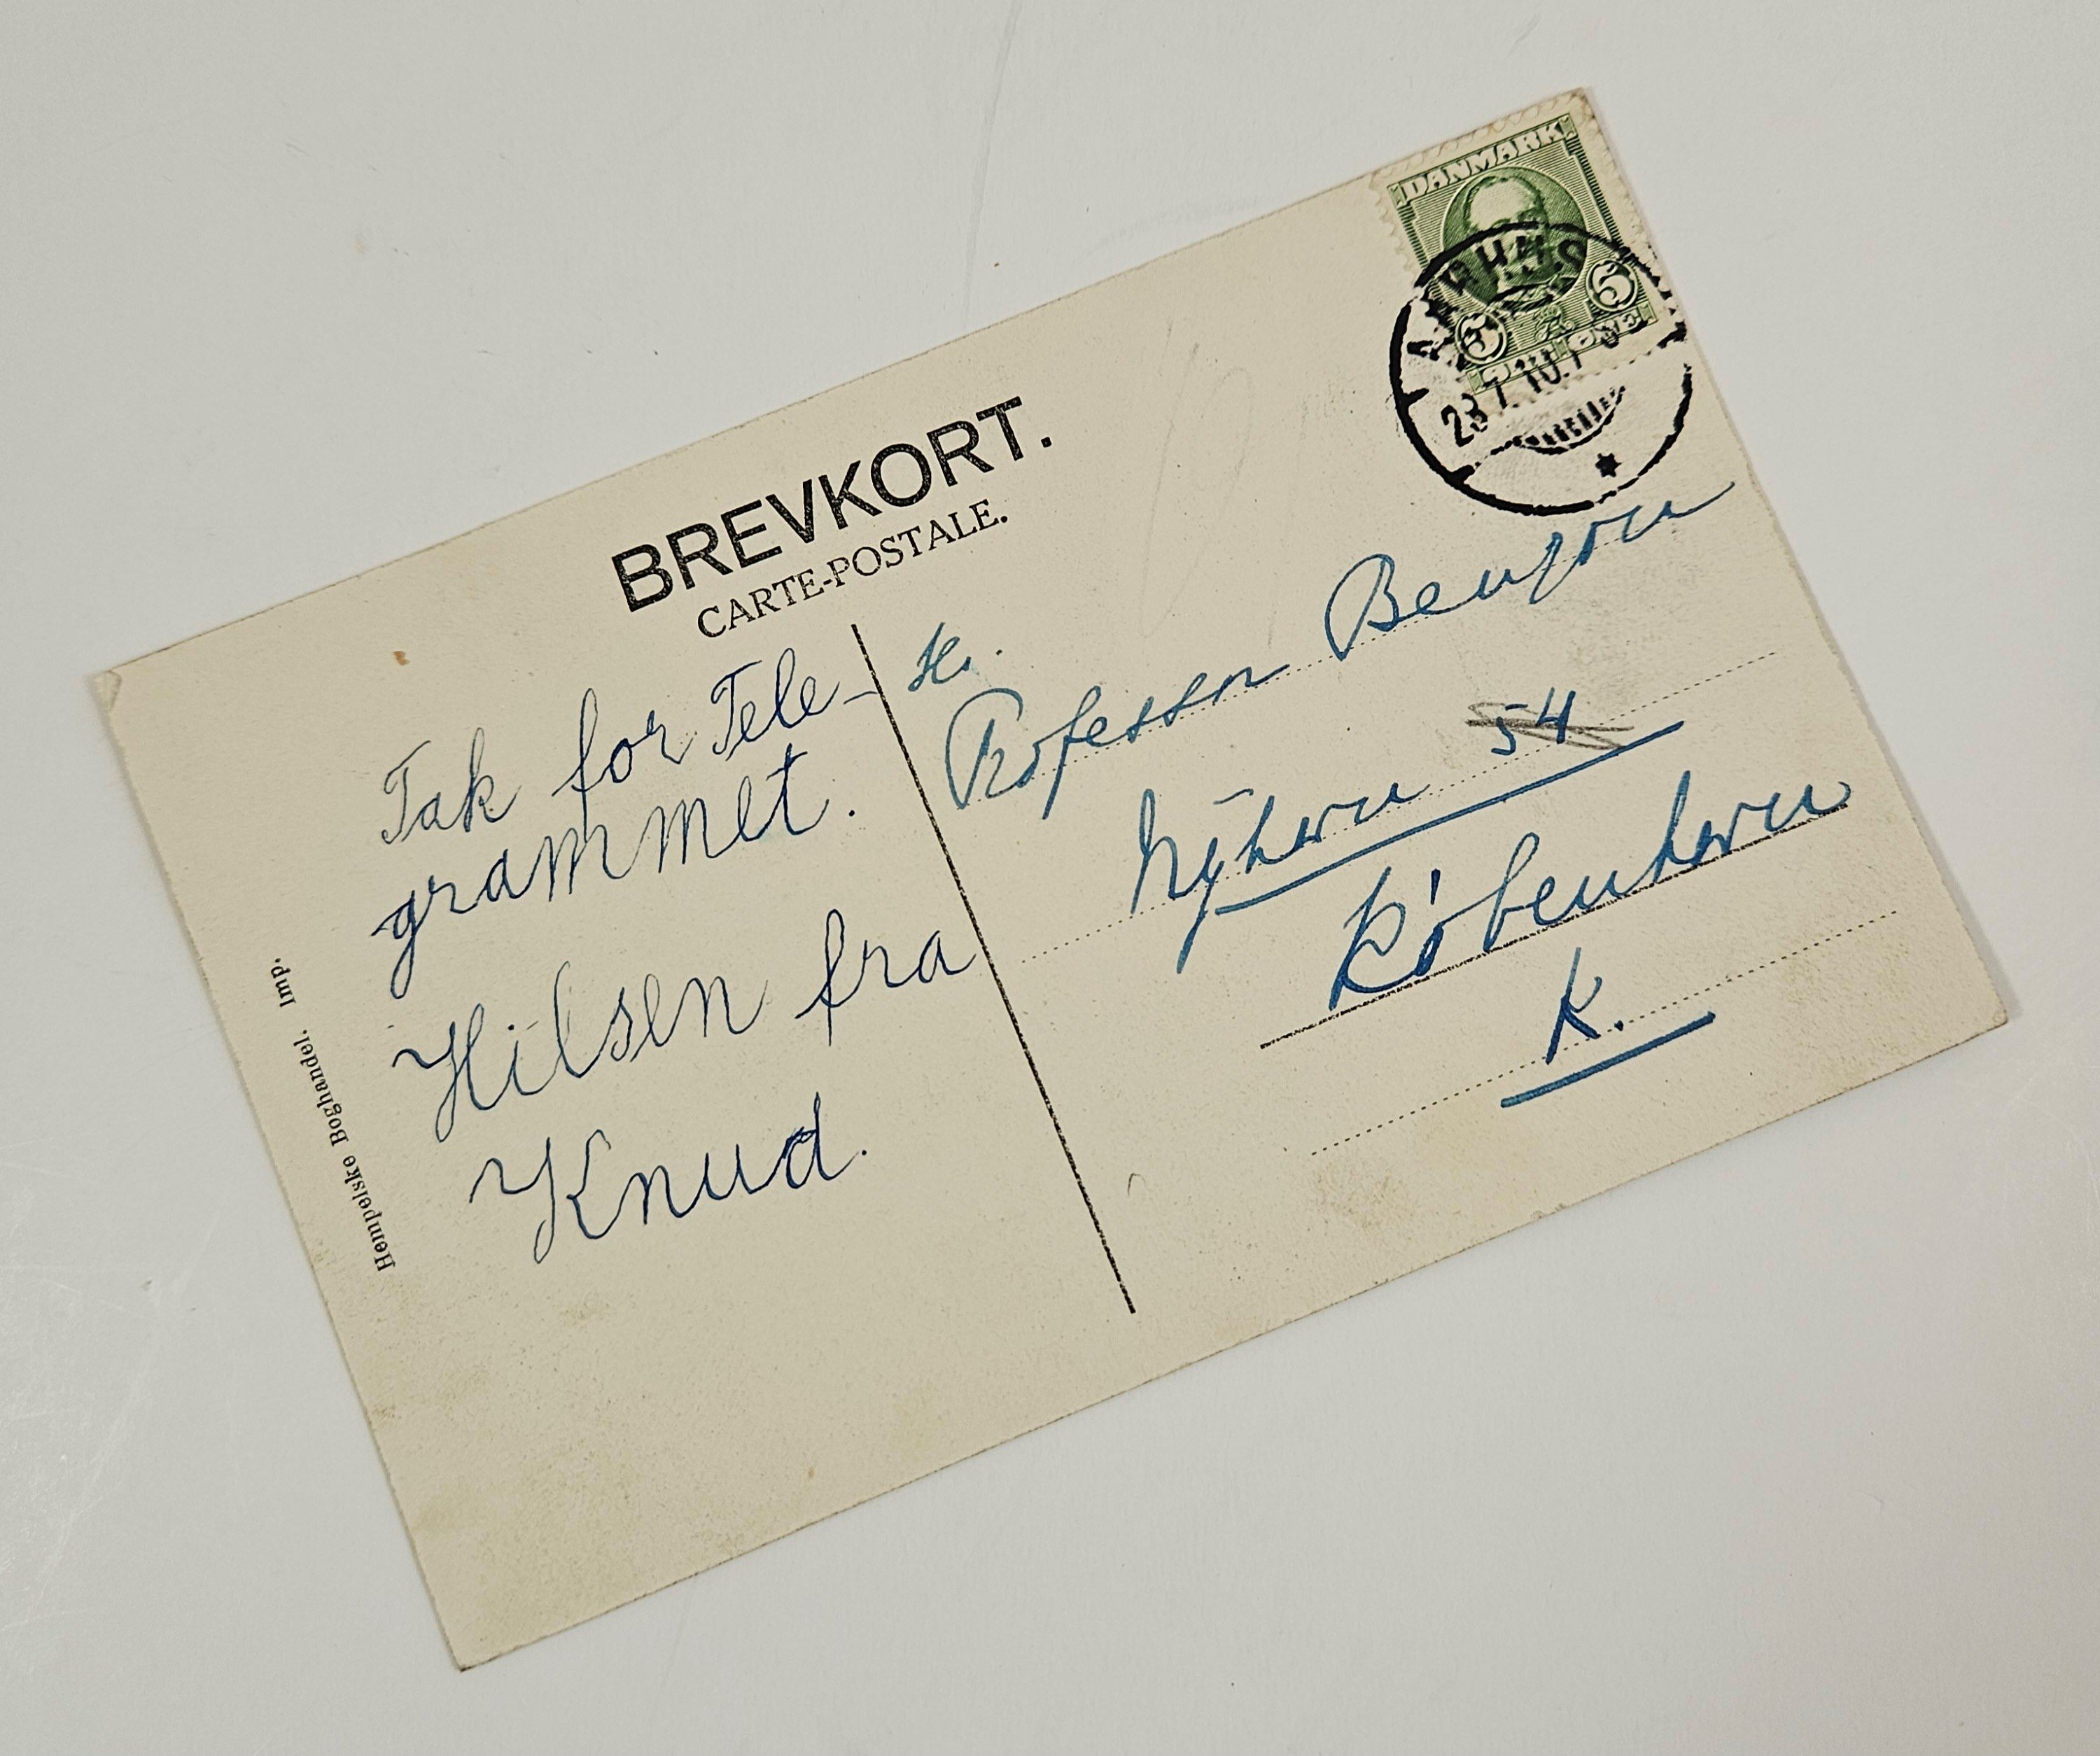 BREVKORT.
CARTE-POSTALE.
DANMARK
5 5
ØRE
AARHUS
23 7 10.
Tak for Tele-
grammet.
Hilsen fra
Knud.
Hr.
Professor Benzon
Nyhavn 54
København
K.
Hempelske Boghandel. Imp.